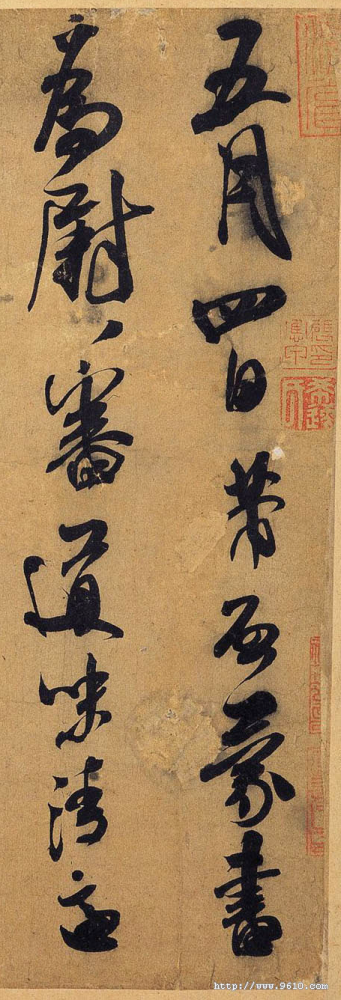 五月四日芾啟蒙書
為尉〻審道味清適
http://www.9610.com